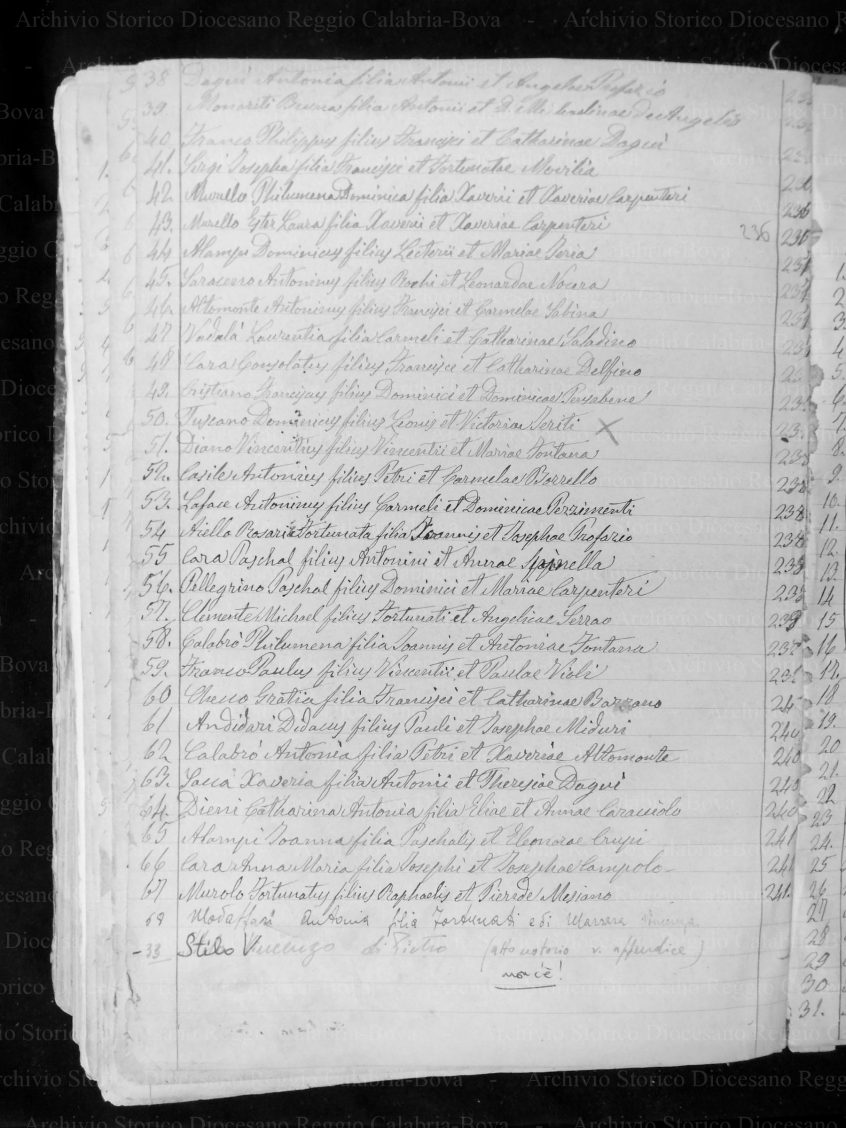 38 Daguì Antonia filia Antonii et Angelae Profazio
39 Monoriti Bruna filia Antonii et D. Michaelinae De Angelis
40. Franco Philippus filius Francisci et Catharinae Daguì
41. Sergi Josepha filia Francisci et Fortunatae Movilia
42. Murollo Philumena Dominica filia Xaverii et Xaveriae Carpenteri 236
43. Murollo Ester Laura filia Xaverii et Xaveriae Carpenteri 236 236
44 Alampi Dominicus filius Lecterii et Mariae Seria 237
45. Saraceno Antoninus filius Rochi et Leonardae Nocera 237
46. Altomonte Antoninus filius Francisci et Carmelae Sabina 237
47 Vadalà Laurentia filia Carmeli et Catharinae Saladino
48 Cara Consolatus filius Francisci et Catharinae Delfino
49. Cristiano Franciscus filius Dominici et Dominicae Pensabene
50. Tuscano Dominicus filius Leonis et Victoriae Seriti X
51. Diano Vincentius filius Vincentii et Mariae Fontana 238
52. Casile Antonius filius Petri et Carmelae Borrello 238
53. Laface Antoninus filius Carmeli et Dominicae Pizzimenti 238
54 Aiello Rosaria Fortunata filia Joannis et Josephae Profazio 238
55 Cara Paschal filius Antonini et Annae Spinella 238
56. Pellegrino Paschal filius Dominici et Mariae Carpenteri
57. Clemente Michael filius Fortunati et Angelicae Serrao 239
58. Calabrò Philumena filia Joannis et Antoniae Fontana
59. Franco Paulus filius Vincentii et Paulae Violi
60 Chesso Gratia filia Francisci et Catharinae Bazzano
61 Andidari Didacus filius Pauli et Josephae Miduri 240
62 Calabrò Antonia filia Petri et Xaveriae Altomonte 240
63. Saccà Xaveria filia Antonii et Theresiae Daguì 240
64. Dieni Catharina Antonia filia Eliae et Annae Caracciolo 240
65 Alampi Joanna filia Paschalis et Eleonorae Crupi 241
66 Cara Anna Maria filia Josephi et Josephae Campolo 241
67 Murolo Fortunatus filius Raphaelis et Pierede Mesiano 241.
68 Modaffari Antonia filia Fortunati e di Marrara Vincenza
- 33 Stilo Vincenzo di Pietro (atto notorio v. appendice)
non c'è!
1.
2.
3.
4.
5.
6.
7.
8.
9.
10.
11.
12.
13.
14
15
16
17.
18
19.
20
21.
22
23
24.
25
26
27
28
29
30
31.
Archivio Storico Diocesano Reggio Calabria-Bova